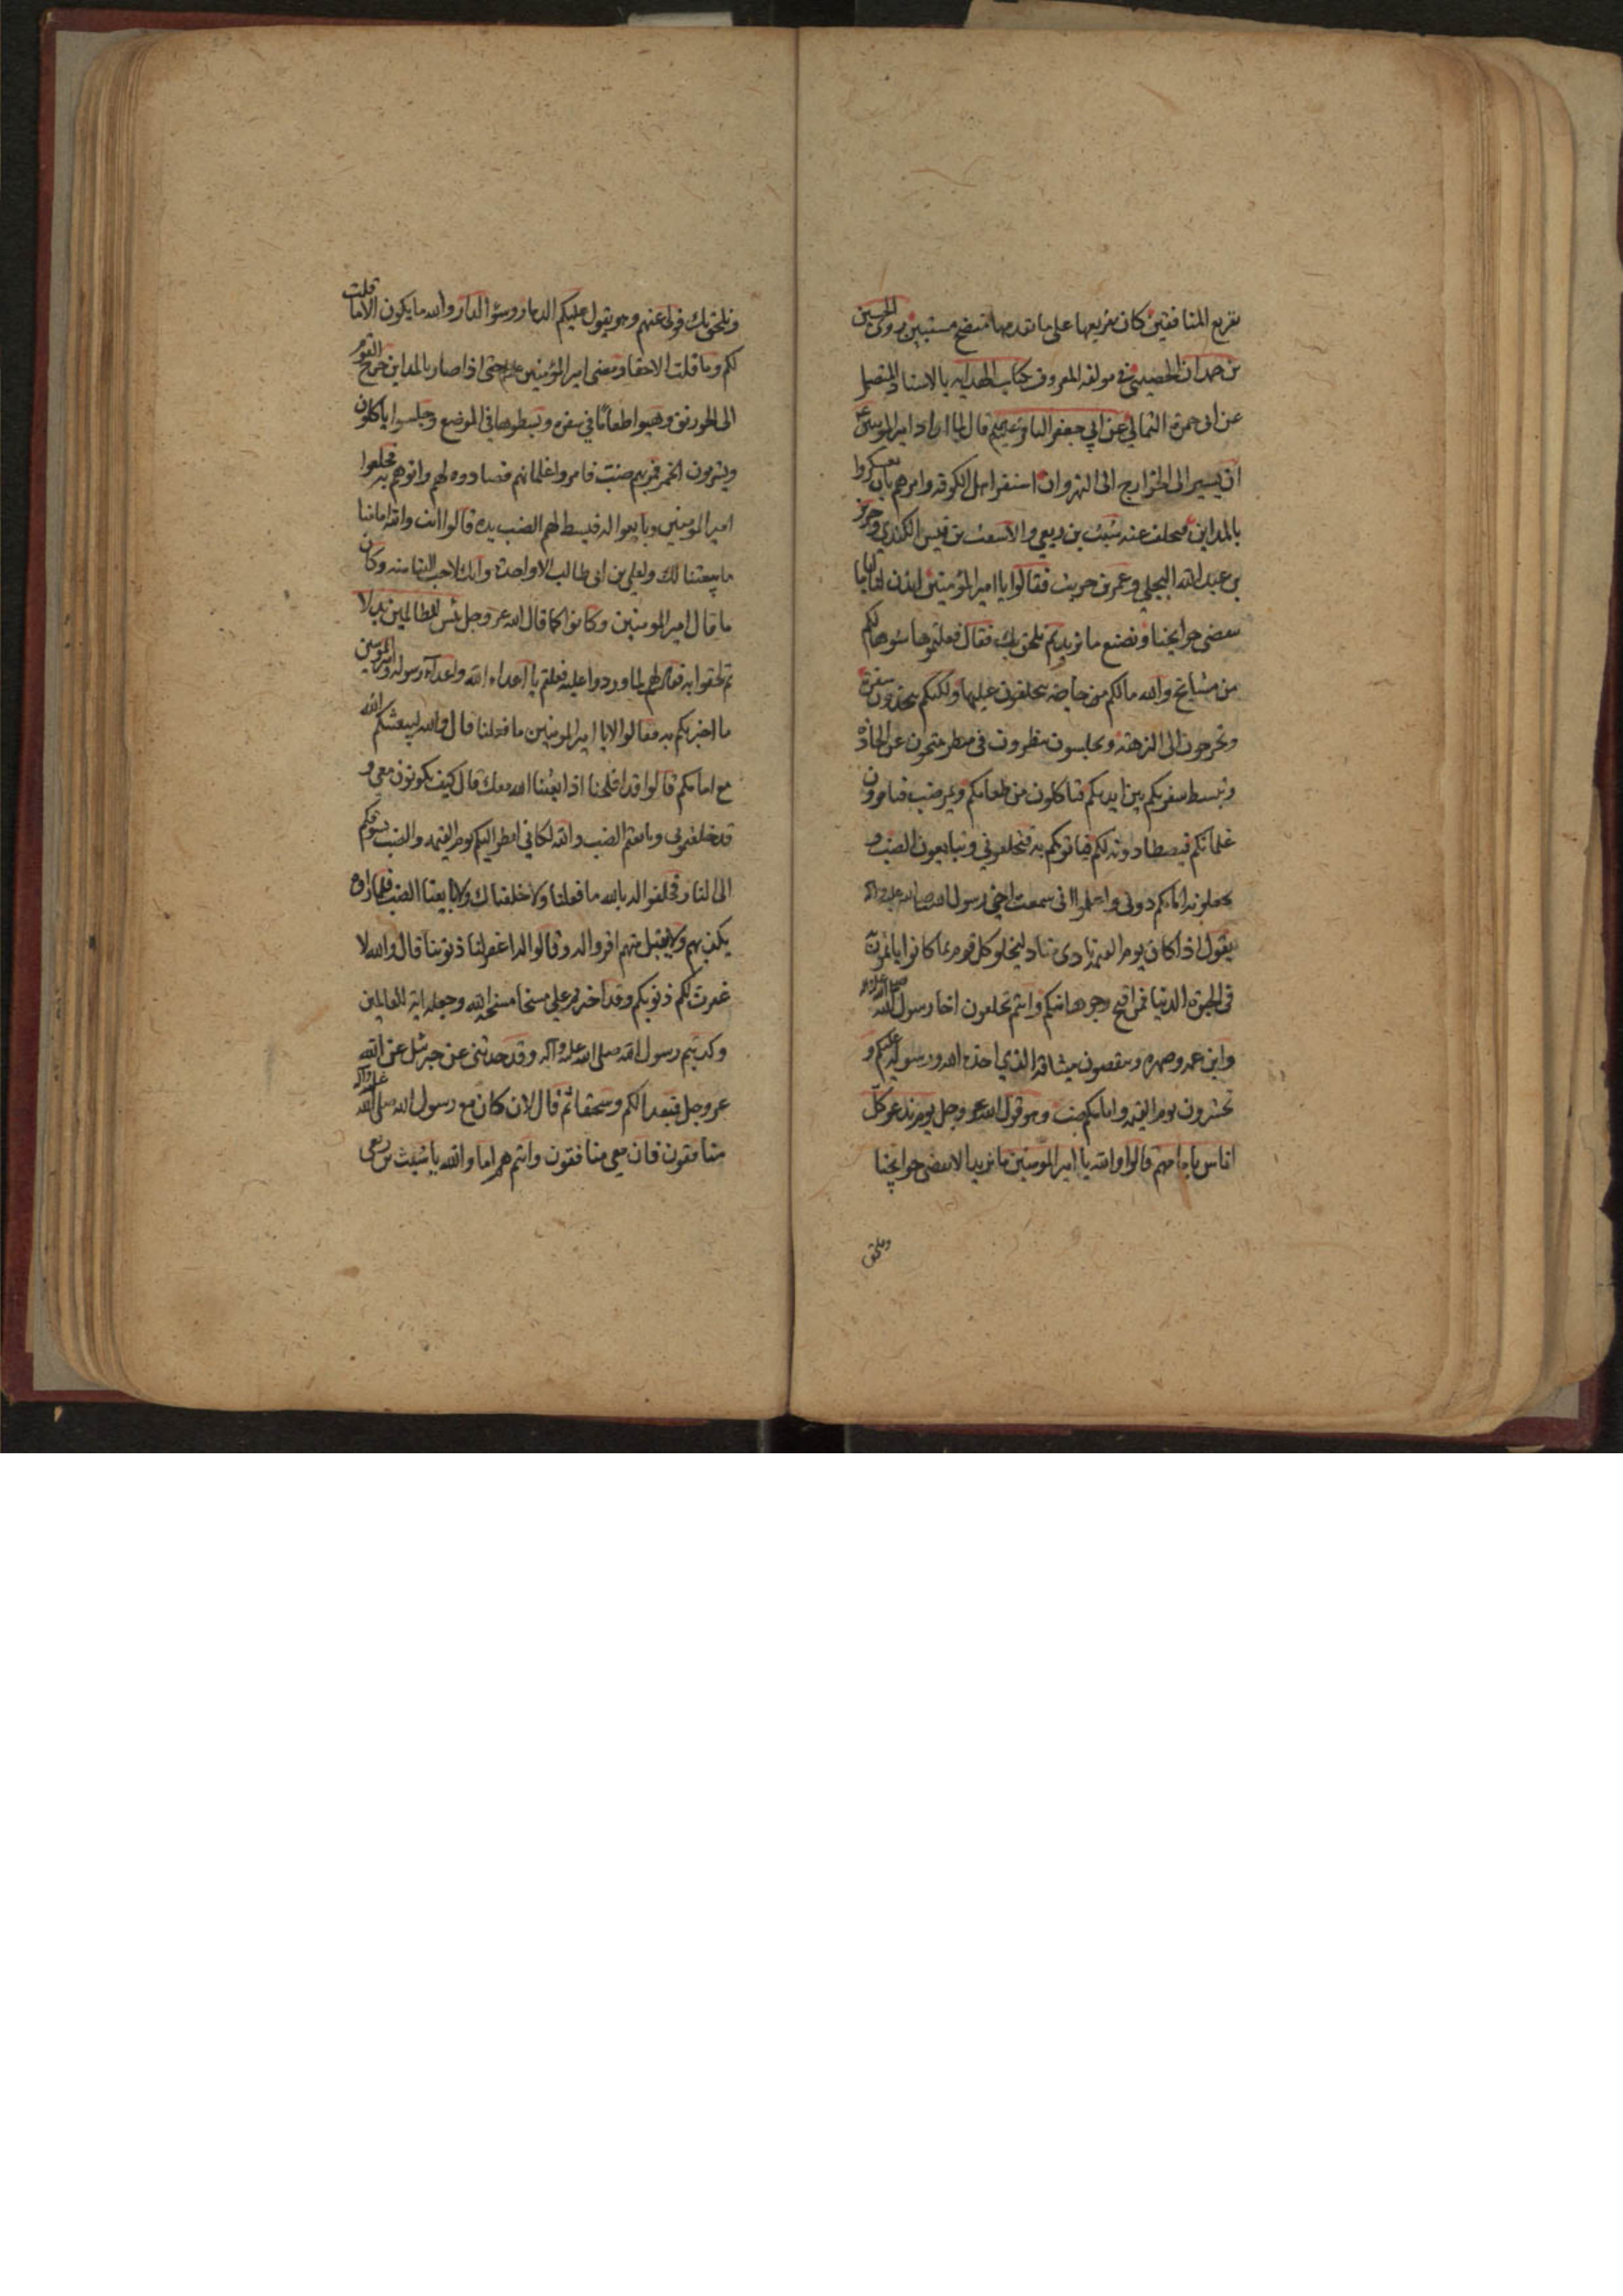 تقريع المنافقين كان تقريعها على ما تقدمها متضح مستبين روى الحسين
بن حمدان الحضيني في مولفه المعروف بكتاب الهدايه بالاسناد المتصل
عن ابى حمزة الثمالي عن ابي جعفر الباقر قال لما اراد امير المومنين ع
ان يسير الى الخوارج الى النهروان استنفر اهل الكوفة وامرهم بان يعسكروا
بالمداين فتخلف عنه شبث بن ربعي والاشعث بن قيس الكندي وجرير
بن عبد الله البجلي وعمرو بن حريث فقالوا يا امير المؤمنين ائذن لنا اياما
نقضى حوايجنا ونصنع ما نريد ثم نلحق بك فقال فعلتموها سوءة لكم
من مشايخ والله ما لكم من حاجة تتخلفون عليها ولكنكم تتخذون سفرة
وتخرجون الى النزهة وتجلسون تنظرون في منظر تتنحون عن الجادة
وتبسط سفرتكم بين ايديكم فتاكلون من طعامكم ويمر ضب فتامرون
غلمانكم فيصطادونه لكم فياتوكم به فتخلعوني وتبايعون الضب و
تجعلونه امامكم دوني واعلموا انى سمعت اخي رسول الله صلى الله عليه واله
يقول اذا كان يوم القيمة نادى مناد ليخلو كل قوم بما كانوا ياتمون
فى الحيوة الدنيا فمن اقبح وجوها منكم وانتم تخلعون اخا رسول الله صلى الله عليه واله
وابن عمه وصهره وتنقضون ميثاقه الذي اخذه الله ورسوله عليكم و
تحشرون يوم القيمة وامامكم ضب وهو قول الله عز وجل يوم ندعو كل
اناس بامامهم قالوا والله يا امير المومنين ما نريد الا نقضى حوايجنا
ونلحق
ونلحق بك فولى عنهم وهو يقول عليكم الدمار وسوء الدار والله ما يكون الا ما قلت
لكم وما قلت الا حقا ومضى امير المؤمنين حتى اذا صار بالمداين خرج القوم
الى الخورنق وهيوا طعاما في سفرة وبسطوها في الموضع وجلسوا ياكلون
ويشربون الخمر فمر بهم ضب فامروا غلمانهم فصادوه لهم واتوهم به فخلعوا
امير المومنين وبايعوا له فبسط لهم الضب يده فقالوا انت والله امامنا
ما بيعتنا لك ولعلي بن ابى طالب الا واحدة وانك لاحب الينا منه وكان
ما قال امير المومنين وكانوا كما قال الله عز وجل بئس للظالمين بدلا
ثم لحقوا به فقال لهم لما وردوا عليه فعلتم يا اعداء الله واعداء رسوله وامير المومنين
ما اخبرتكم به فقالوا لا يا امير المومنين ما فعلنا قال والله ليبعثنكم الله
مع امامكم قالوا قد افلحنا اذا بعثنا الله معك قال كيف تكونون معي و
قد خلعتموني وبايعتم الضب والله لكاني انظر اليكم يوم القيمه والضب يسوقكم
الى النار فحلفوا له بالله ما فعلنا ولا خلعناك ولا بايعنا الضب فلما راوه
يكذبهم ولا يقبل منهم اقروا له وقالوا له اغفر لنا ذنوبنا قال والله لا
غفرت لكم ذنوبكم وقد اخترتم على مسخا مسخه الله وجعله اية للعالمين
وكذبتم رسول الله صلى الله عليه واله وقد حدثني عن جبرئيل عن الله
عز وجل فبعدا لكم وسحقا ثم قال لان كان مع رسول الله صلى الله عليه واله
منافقون فان معي منافقون وانتم هم اما والله يا شبث بن ربعي